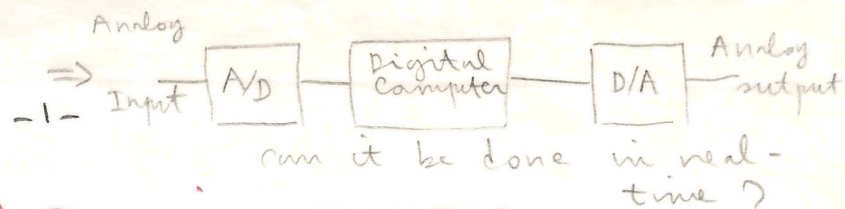 Analog
⇒ Input A/D Digital Computer D/A Analog output
-1-
can it be done in real-
time ?